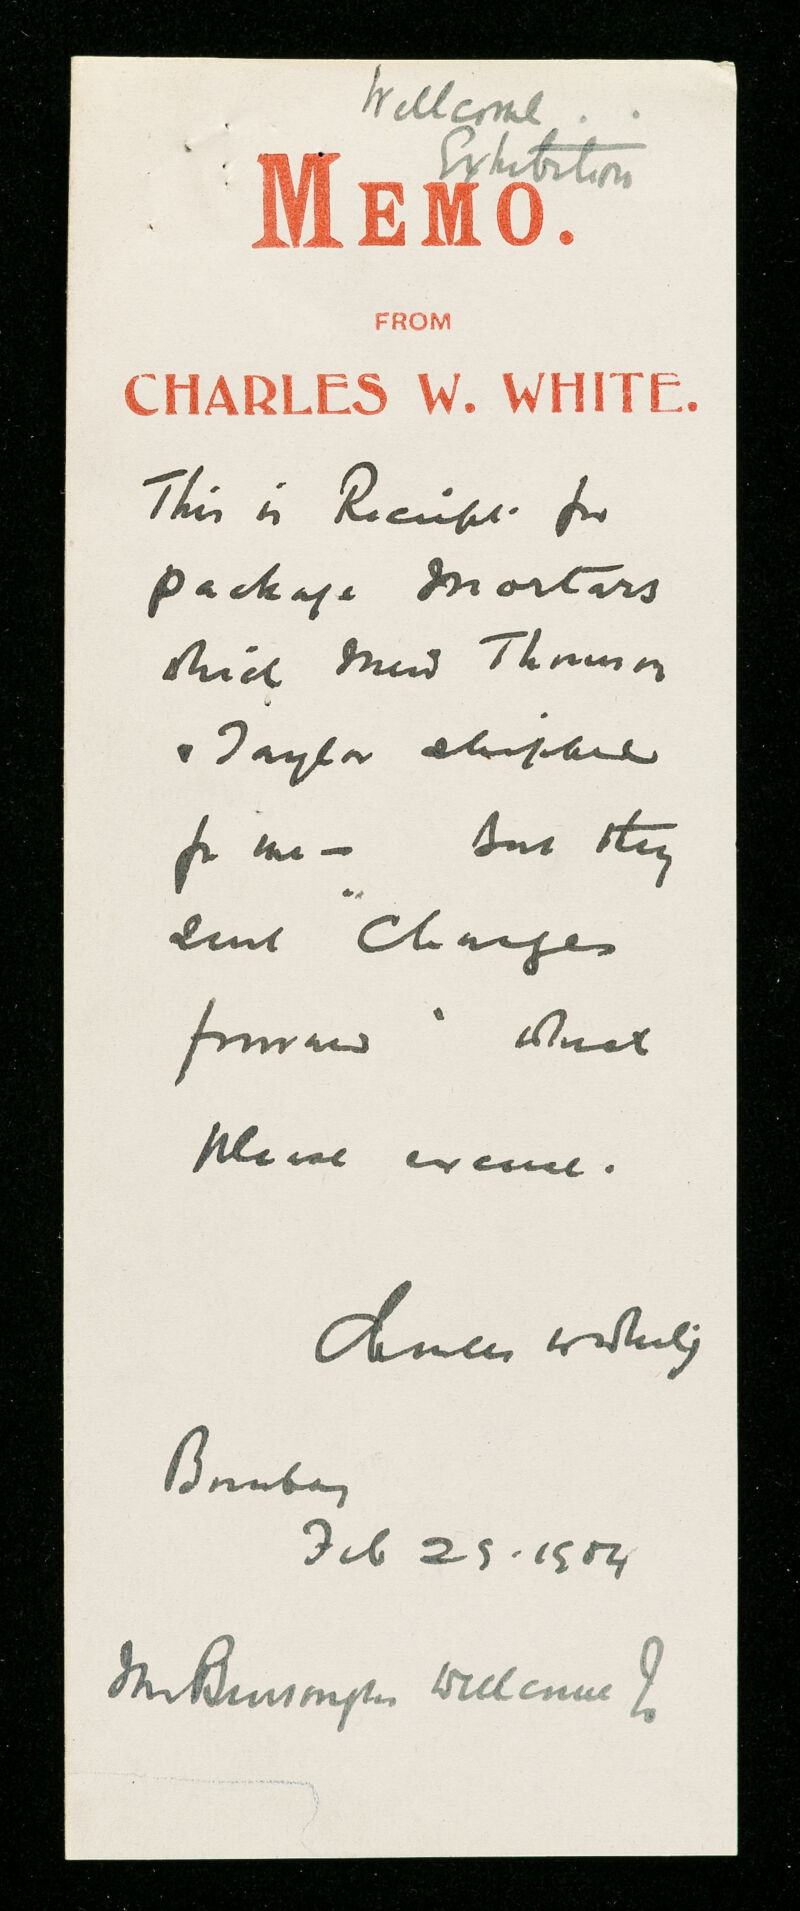 Wellcome
Exhibition
MEMO.
FROM
CHARLES W. WHITE.
This is Receipt for
package Mortars
which Thomson
& Taylor shipped
for me — But they
sent "Charges
forward" which
please excuse.
Charles W White
Bombay
Feb 29 . 1904
Burroughs Wellcome & Co